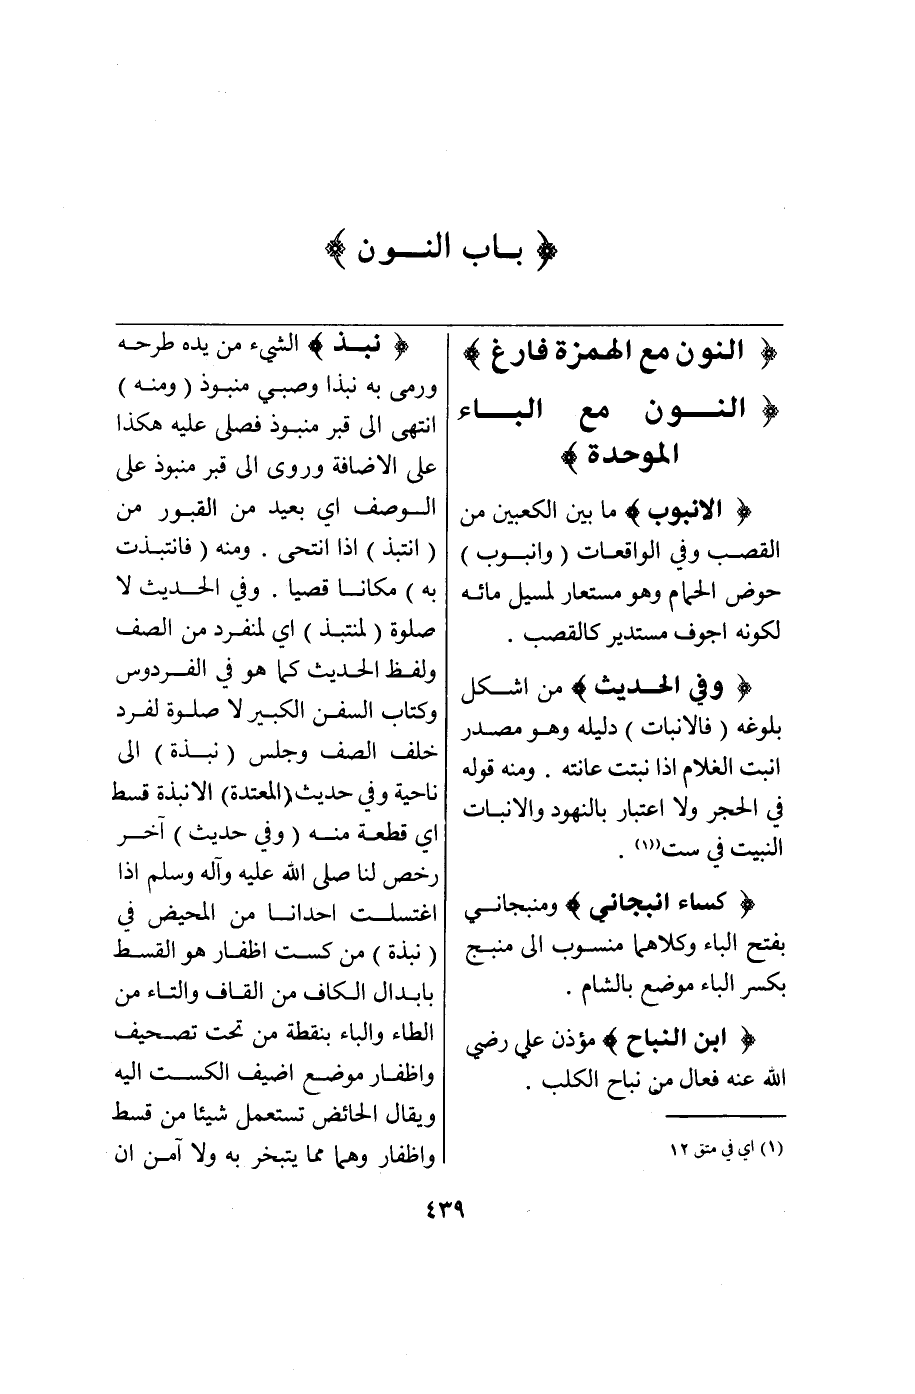 ﴿ بــاب النــون ﴾
﴿ النون مع الهمزة فارغ ﴾
﴿ النــون مع البــاء
الموحدة ﴾
﴿ الانبوب ﴾ ما بين الكعبين من
القصب وفي الواقعات ( وانبوب )
حوض الحمام وهو مستعار لمسيل مائه
لكونه اجوف مستدير كالقصب .
﴿ وفي الحديث ﴾ من اشكل
بلوغه ( فالانبات ) دليله وهو مصدر
انبت الغلام اذا نبتت عانته . ومنه قوله
في الحجر ولا اعتبار بالنهود والانبات
النبيت في ست(١) .
﴿ كساء انبجاني ﴾ ومنبجاني
بفتح الباء وكلاهما منسوب الى منبج
بكسر الباء موضع بالشام .
﴿ ابن النباح ﴾ مؤذن علي رضي
الله عنه فعال من نباح الكلب .
(١) اي في متق ١٢
﴿ نبذ ﴾ الشيء من يده طرحه
ورمى به نبذا وصبي منبوذ ( ومنه )
انتهى الى قبر منبوذ فصلى عليه هكذا
على الاضافة وروى الى قبر منبوذ على
الوصف اي بعيد من القبور من
( انتبذ ) اذا انتحى . ومنه ( فانتبذت
به ) مكانا قصيا . وفي الحديث لا
صلوة ( لمنتبذ ) اي لمنفرد من الصف
ولفظ الحديث كما هو في الفردوس
وكتاب السفن الكبير لا صلوة لفرد
خلف الصف وجلس ( نبذة ) الى
ناحية وفي حديث (المعتدة) الانبذة قسط
اي قطعة منه ( وفي حديث ) آخر
رخص لنا صلى الله عليه وآله وسلم اذا
اغتسلت احدانا من المحيض في
( نبذة ) من كست اظفار هو القسط
بابدال الكاف من القاف والتاء من
الطاء والباء بنقطة من تحت تصحيف
واظفار موضع اضيف الكست اليه
ويقال الحائض تستعمل شيئا من قسط
واظفار وهما مما يتبخر به ولا آمن ان
٤٣٩